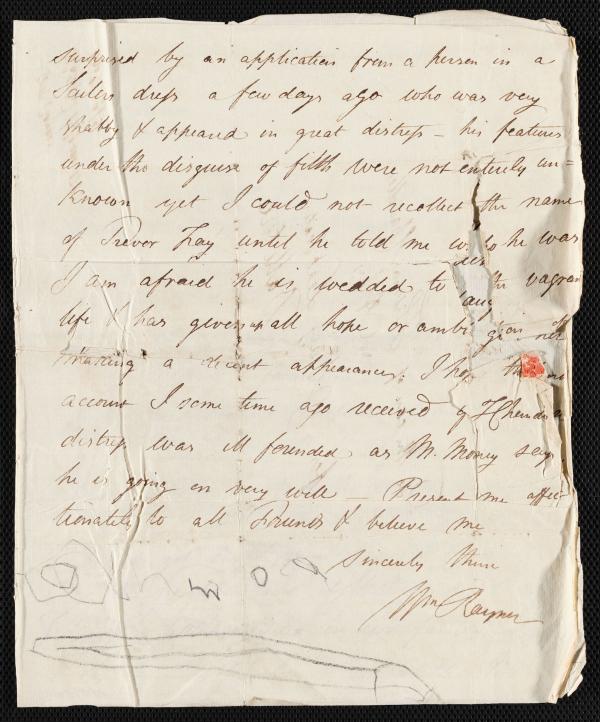 surprised by an application from a person in a
Sailors dress a few days ago who was very
shabby & appeared in great distress – his features
under the disguise of filth were not entirely un=
known yet I could not recollect the name
of Trevor Fay until he told me who he was
I am afraid he is wedded to the vagran
life & has given up all hope or ambi
making a decent appearance. I ho
account I some time ago received of
distress was ill founded as M. Money says
he is going on very well – Present me affec
tionately to all Friends & believe me
Sincerely thine
Wm Rayner